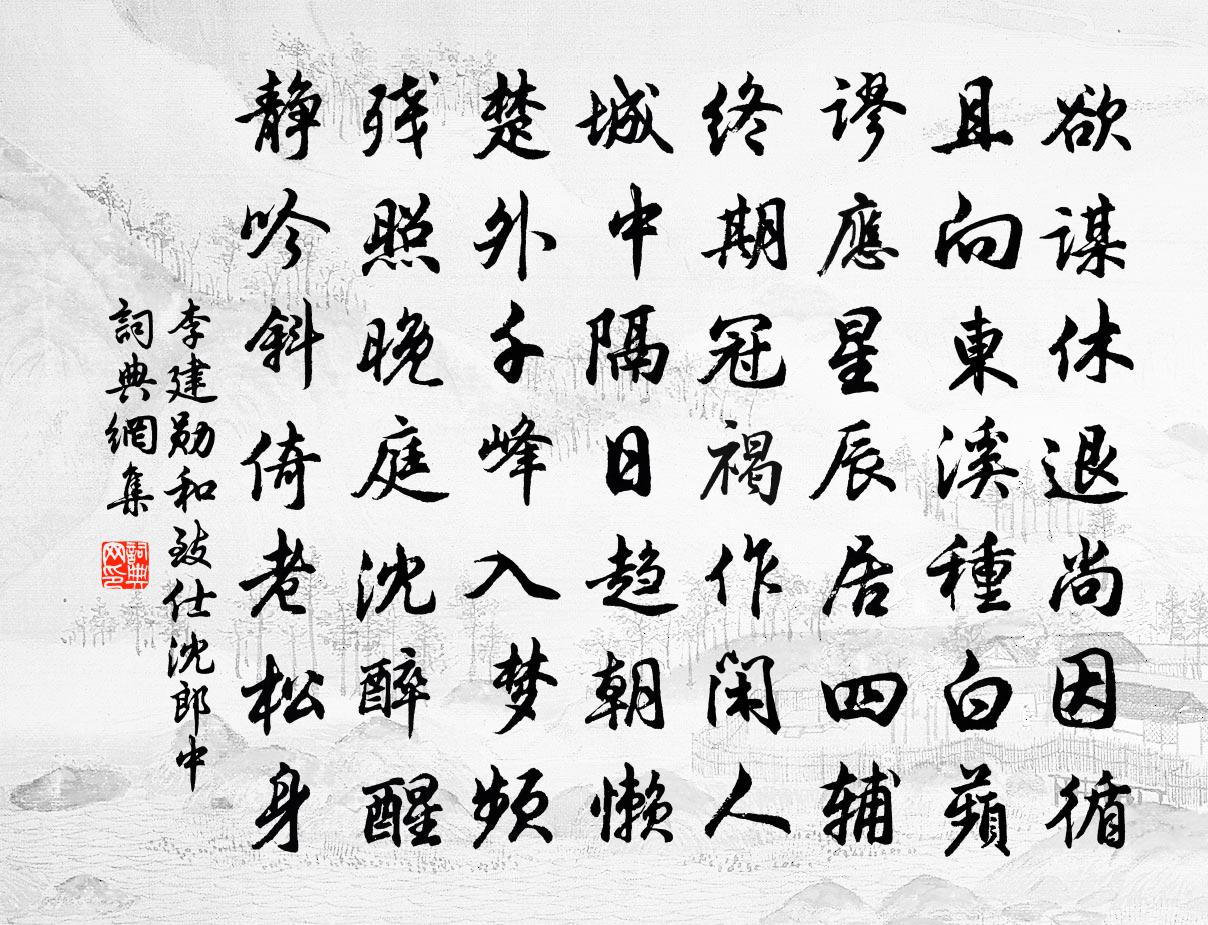 欲谋休退尚因循
且向東溪種白蘋
谬應星辰居四辅
终期冠褐作闲人
城中隔日趋朝懒
楚外千峰入梦频
残照晚庭沈醉醒
静吟斜倚老松身
李建勋和致仕沈郎中
詞典網集
詞典网印